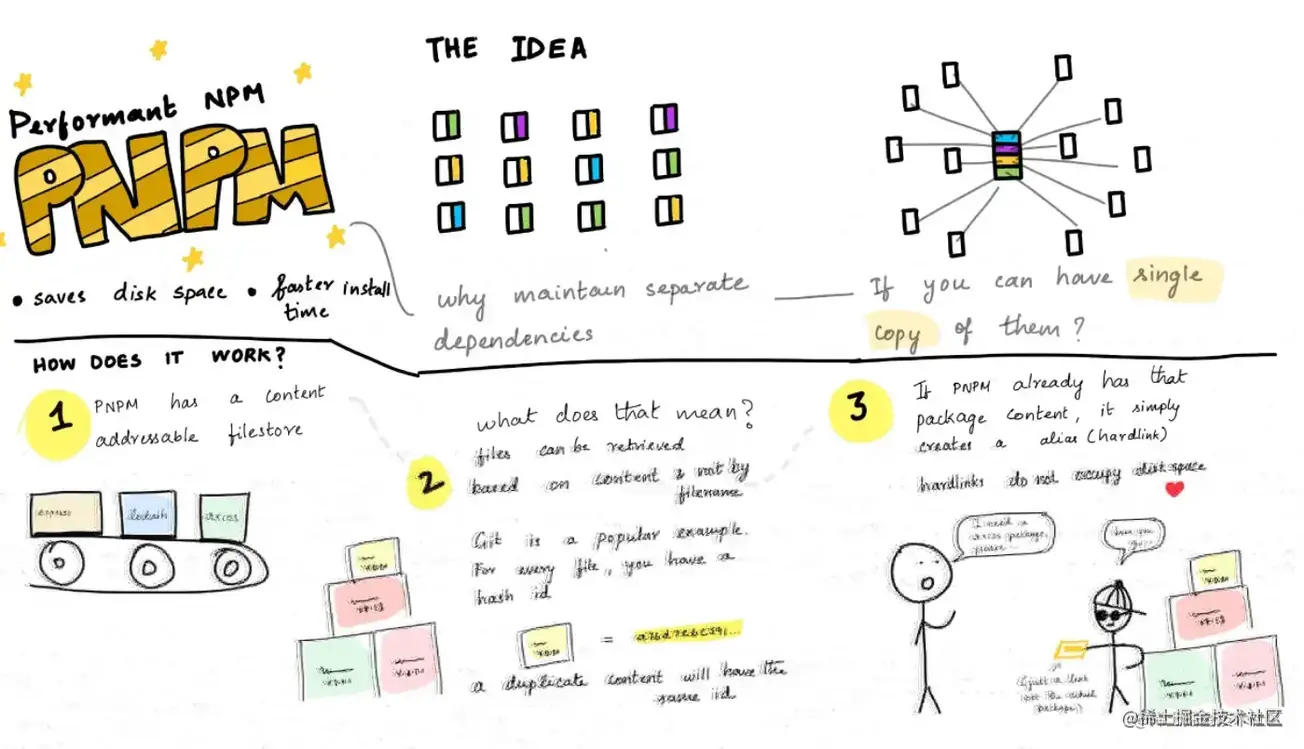 Performant NPM
PNPM
• saves disk space • faster install
time
THE IDEA
why maintain separate
dependencies
If you can have single
copy of them?
HOW DOES IT WORK?
1
PNPM has a content
addressable filestore
express
lodash
axios
2
what does that mean?
files can be retrieved
based on content & not by
filename
Git is a popular example.
For every file, you have a
hash id
=
a duplicate content will have the
same id
3
If PNPM already has that
package content, it simply
creates a alias (hardlink)
hardlinks do not occupy disk space
I need a
axios package,
please
here you
go
(just a link
not the actual
package)
@稀土掘金技术社区